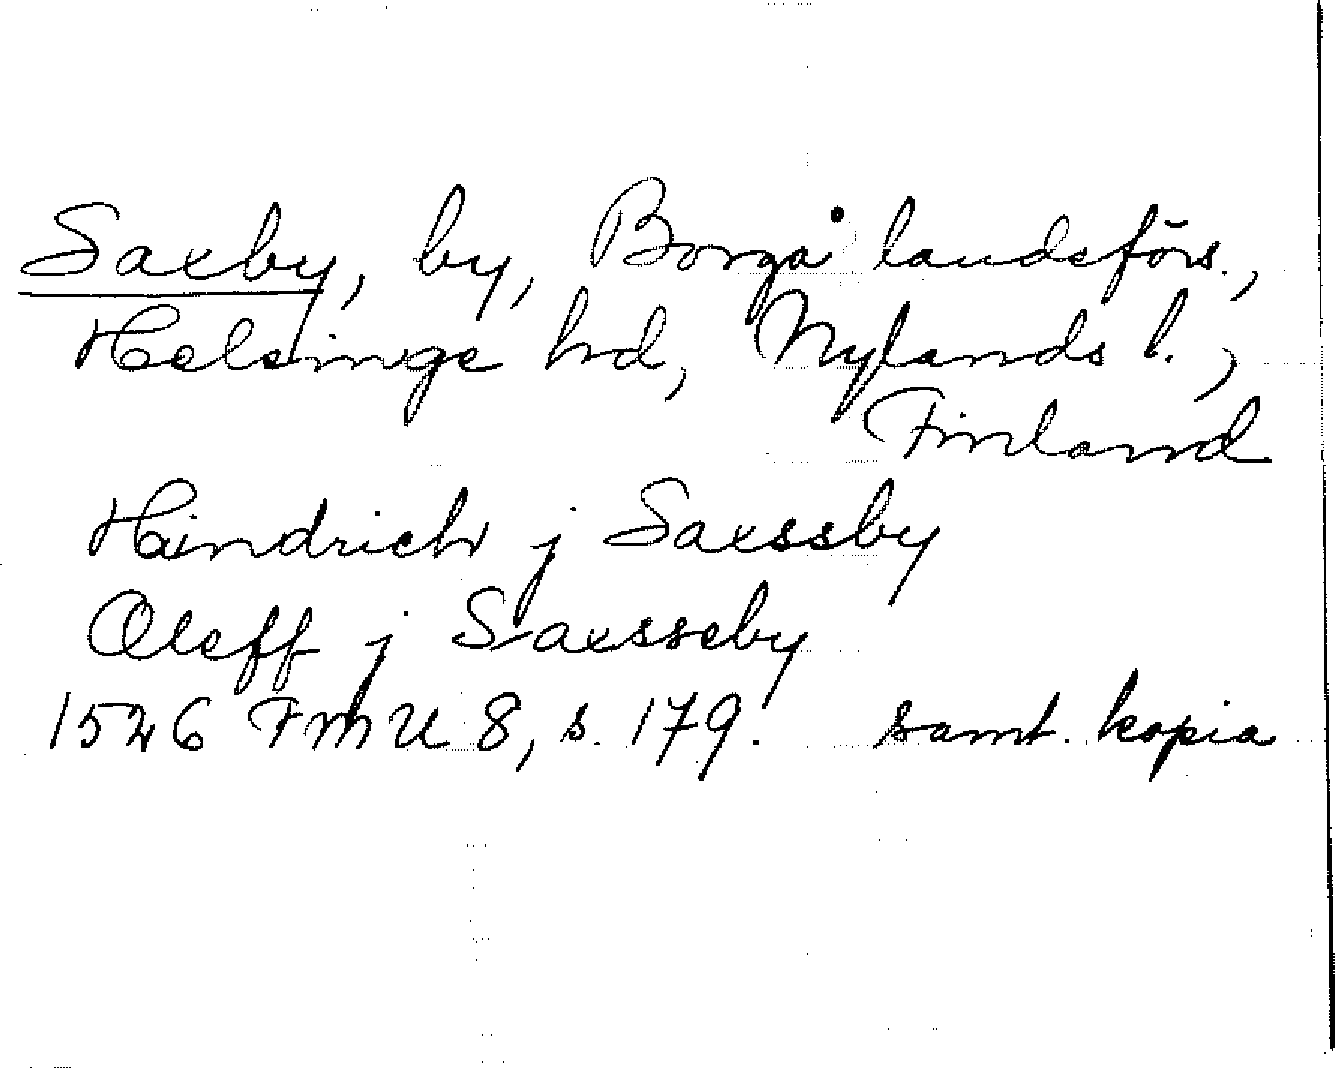 Saxby, by, Borgå landsförs.,
Helsinge hd, Nylands l.,
Finland
Hindrich j Saxssby
Oleff j Saxsseby
1526 FMU 8, s. 179. samt. kopia